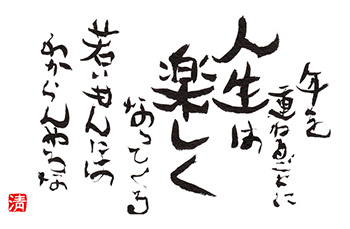 年を
重ねるごとに
人生は
楽しく
なってくる
若いもんには
わからんやろな
清